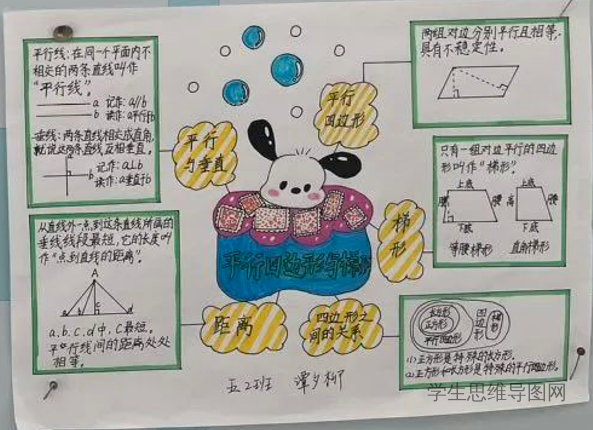 平行线:在同一个平面内不
相交的两条直线叫作
"平行线"。
a 记作:a//b
b 读作:a平行b
垂线:两条直线相交成直角,
就说这两条直线互相垂直。
记作:a⊥b
读作:a垂直于b
从直线外一点到这条直线所画的
垂线线段最短,它的长度叫
作"点到直线的距离"。
A
a.b.c.d中,c最短。
平行线间的距离处处
相等。
平行
与垂直
平行
四边形
梯
形
距离
四边形之
间的关系
平行四边形与梯形
两组对边分别平行且相等,
具有不稳定性。
只有一组对边平行的四边
形叫作"梯形"。
上底
腰 腰
下底
等腰梯形
上底
高 腰
下底
直角梯形
长方形
正方形
平行四边形
四边形
梯形
(1)正方形是特殊的长方形.
(2)正方形和长方形是特殊的平行四边形.
五2班 谭夕柳
学生思维导图网